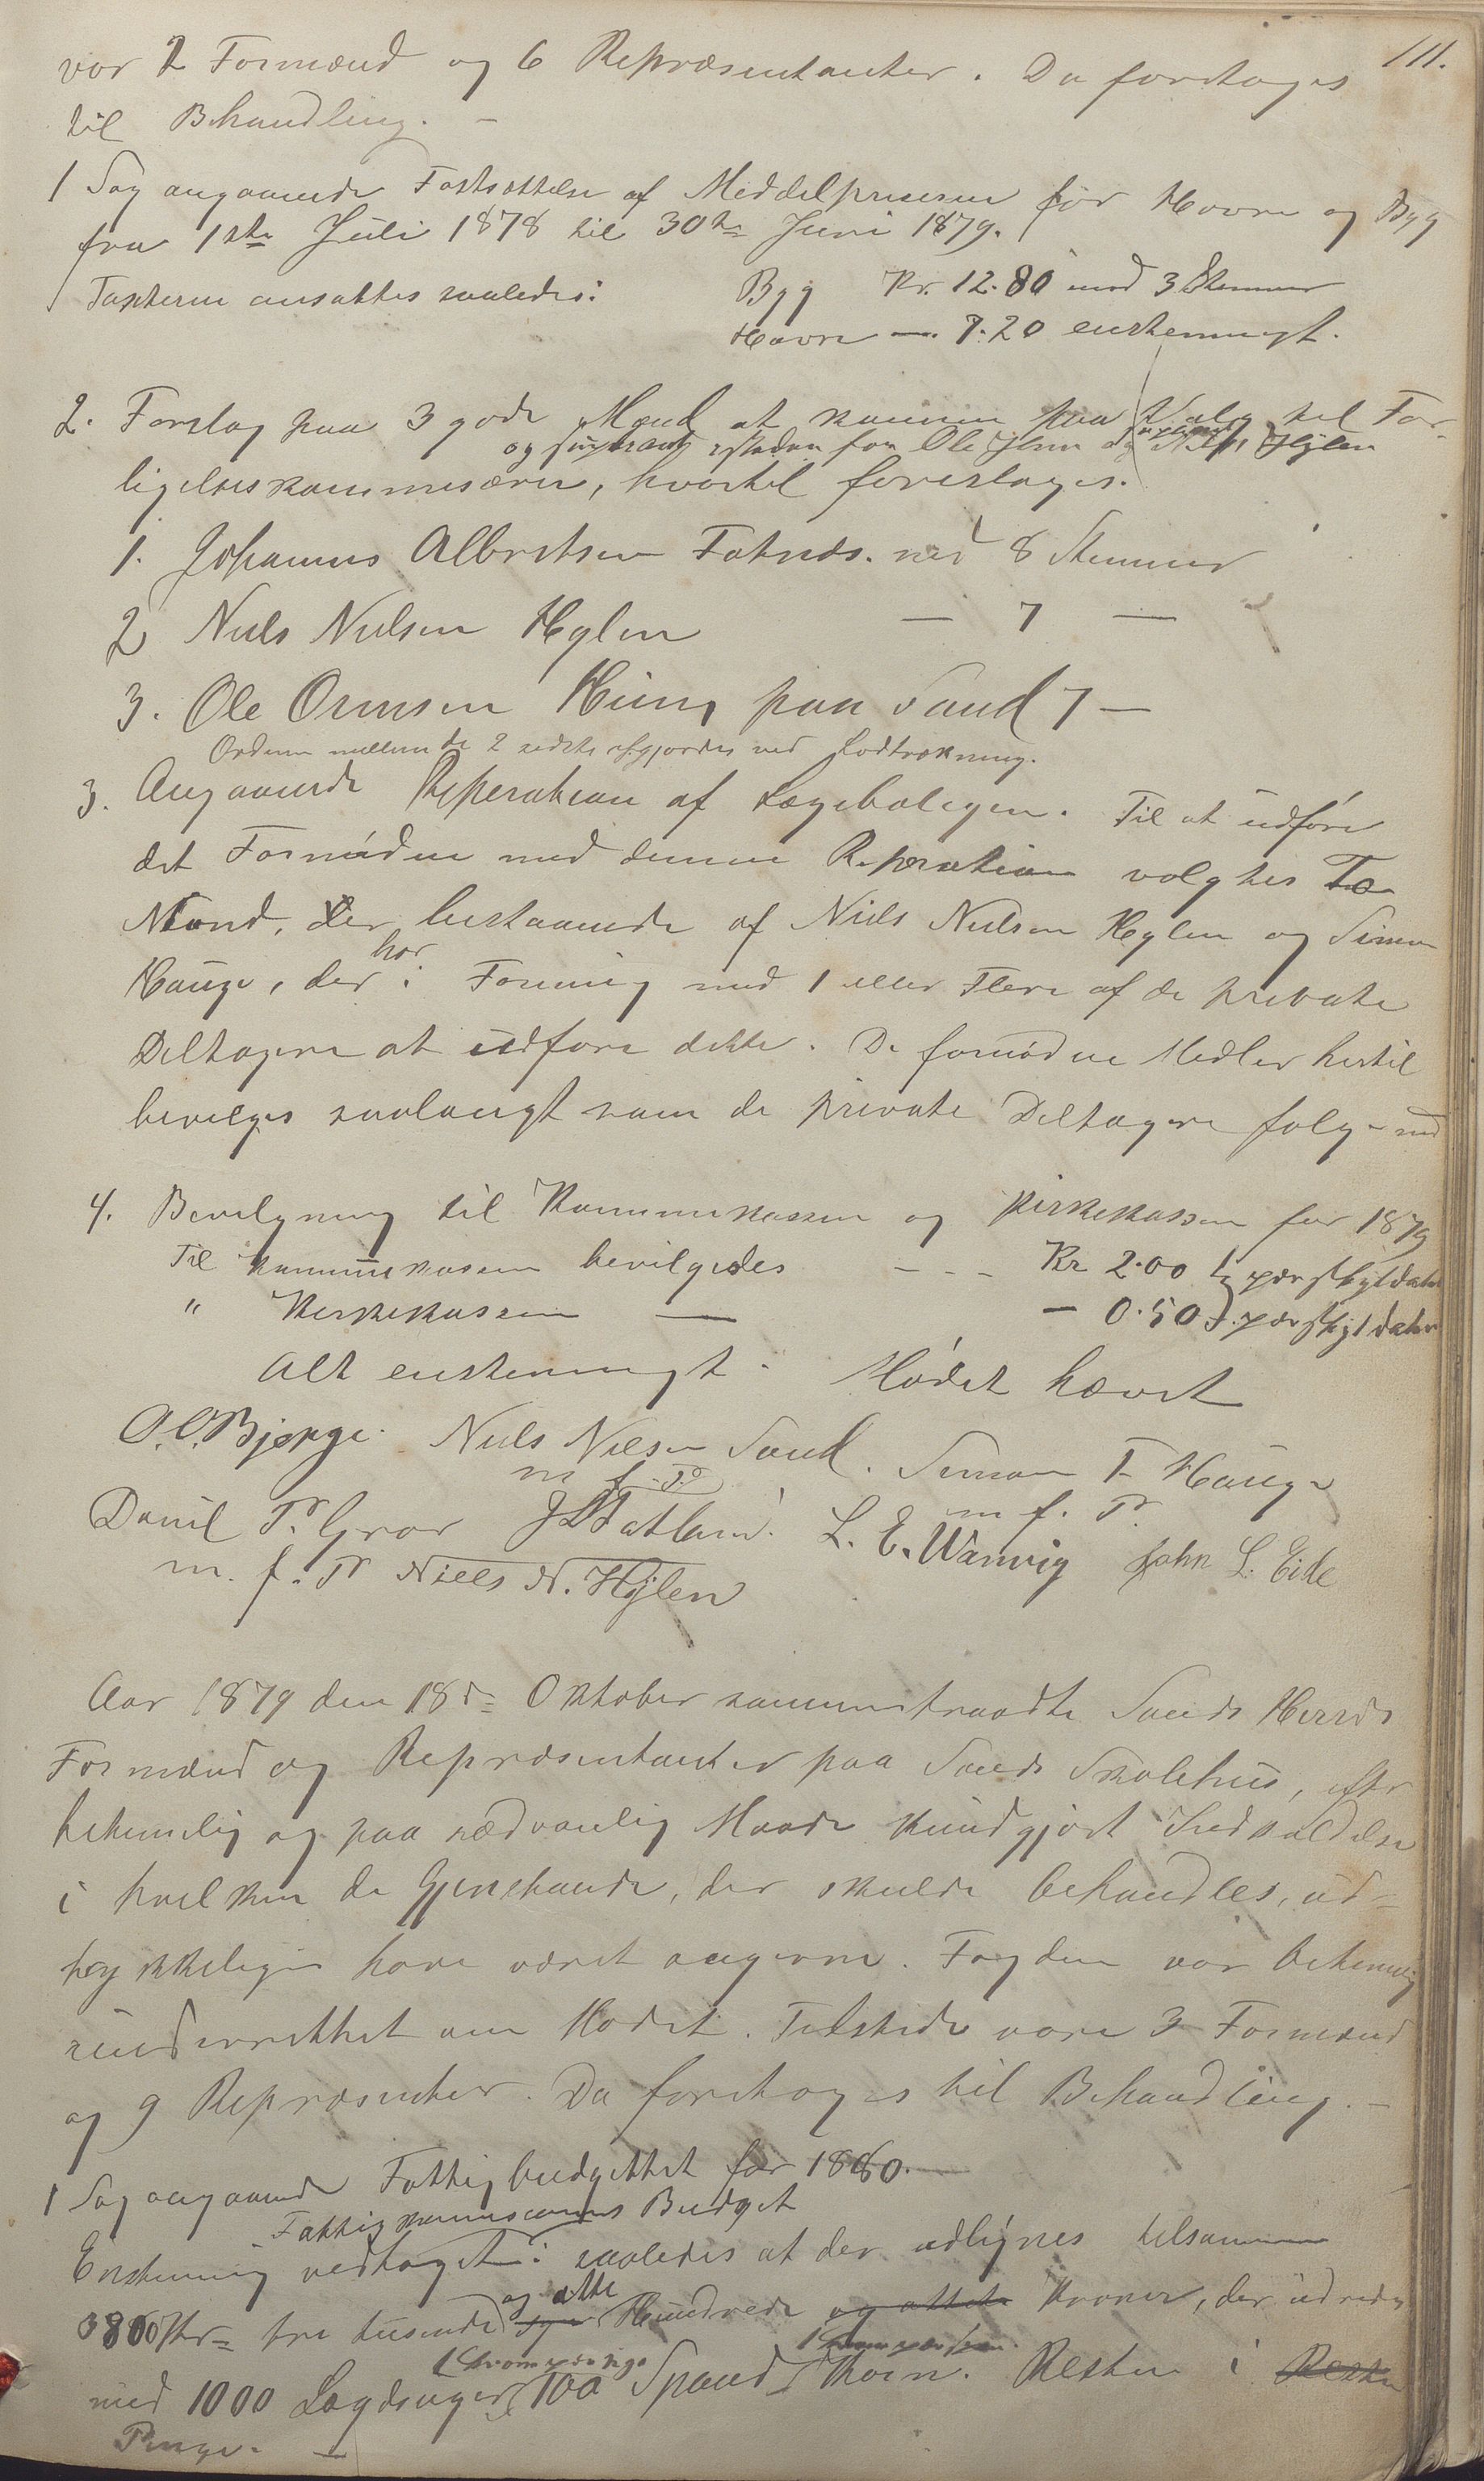 111.
var 2 Formænd og 6 Repræsentanter. Da foretoges
til Behandling. -
1 Sag angaaende Fastsættelse af Middelprisene for Havre og Byg
fra 1ste Juli 1878 til 30te Juni 1879.
Taxterne ansattes saaledes: Byg Kr. 12.80 med 3 Stemmer
Havre — 7.20 enstemmigt.
2. Forslag paa 3 gode Mænd at komme paa Valg til For-
og istedenfor Ole Niels Hylen
ligelseskommisærer, hvortil foreslages.
1. Johannes Albretsen Fatnæs. med 8 Stemmer
2 Niels Nielsen Hylen — 7 —
3. Ole Ormsen Hiim paa Sand 7 —
Ordenen mellem de 2 sidste afgjordes ved Lodtrækning.
3. Angaaende Reperation af Lægeboligen. Til at udføre
det Fornødne med denne Reperation valgtes To
Mænd, der bestaaende af Niels Nielsen Hylen og Simon
har
Hauge, der i Forening med 1 eller Flere af de private
Deltagere at udføre dette. De fornødne Midler hertil
beviliges saalangt som de private Deltagere følge med
4. Bevilgning til Kommunekassen og Kirkekassen for 1879
Til Kommunekassen bevilgedes - - - Kr 2.00 per Skyldaler
" Kirkekassen — - 0.50 per Skyldaler
Alt enstemmigt. Mødet hævet
O. O. Bjerge. Niels Nilsen Sand. Simon T. Hauge
m f. P. m f. P.
Daniel P. Groe Fatland. L. E. Wanvig John L. Eide
m. f. P Niels N. Hylen
Aar 1879 den 18de Oktober sammentraadte Sands Herreds
Formænd og Repræsentanter paa Sands Skolehus, efter
betimelig og paa sædvanlig Maade kundgjort Indkaldelse
i hvilken de Gjenstande, der skulde behandles, ud-
trykkeligen have været angivne. Fogden var betimelig
underrettet om Mødet. Tilstede vare 3 Formænd
og 9 Repræsenter. Da foretoges til Behandling. -
1 Sag angaaende Fattigbudgettet for 1880. —
Fattigkommisionens Budget
Enstemmig vedtaget: saaledes at der udlignes tilsammen
og otte
3800 Kr= tre tusende Hundrede og ottete Kroner, der udredes
1 Krone per Uge
med 1000 Lægdsuger, 100 Spand Korn. Resten i Resten
Penge. —